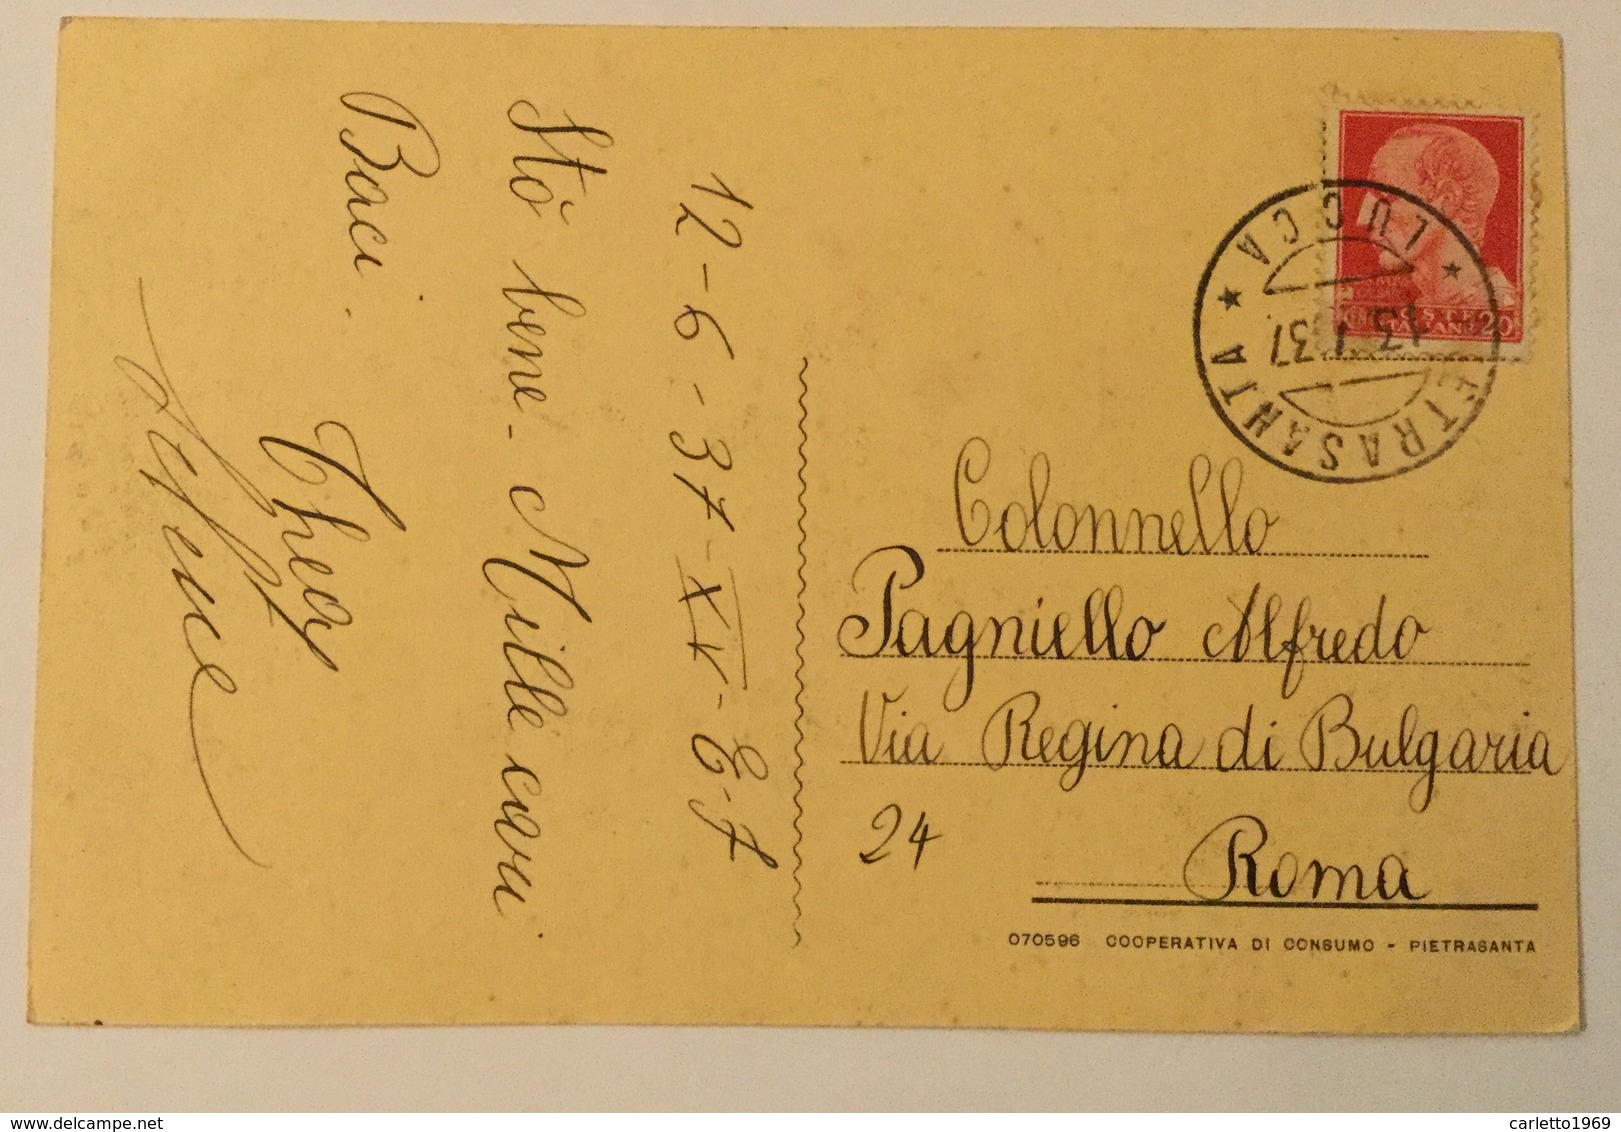 12-6-37-XV-E-F
Stò bene - Mille cari
Baci.
POSTE ITALIANE
20
PIETRASANTA
★ LUCCA ★
37
Colonnello
Pagniello Alfredo
Via Regina di Bulgaria
24
Roma
070596 COOPERATIVA DI CONSUMO - PIETRASANTA
carletto1969